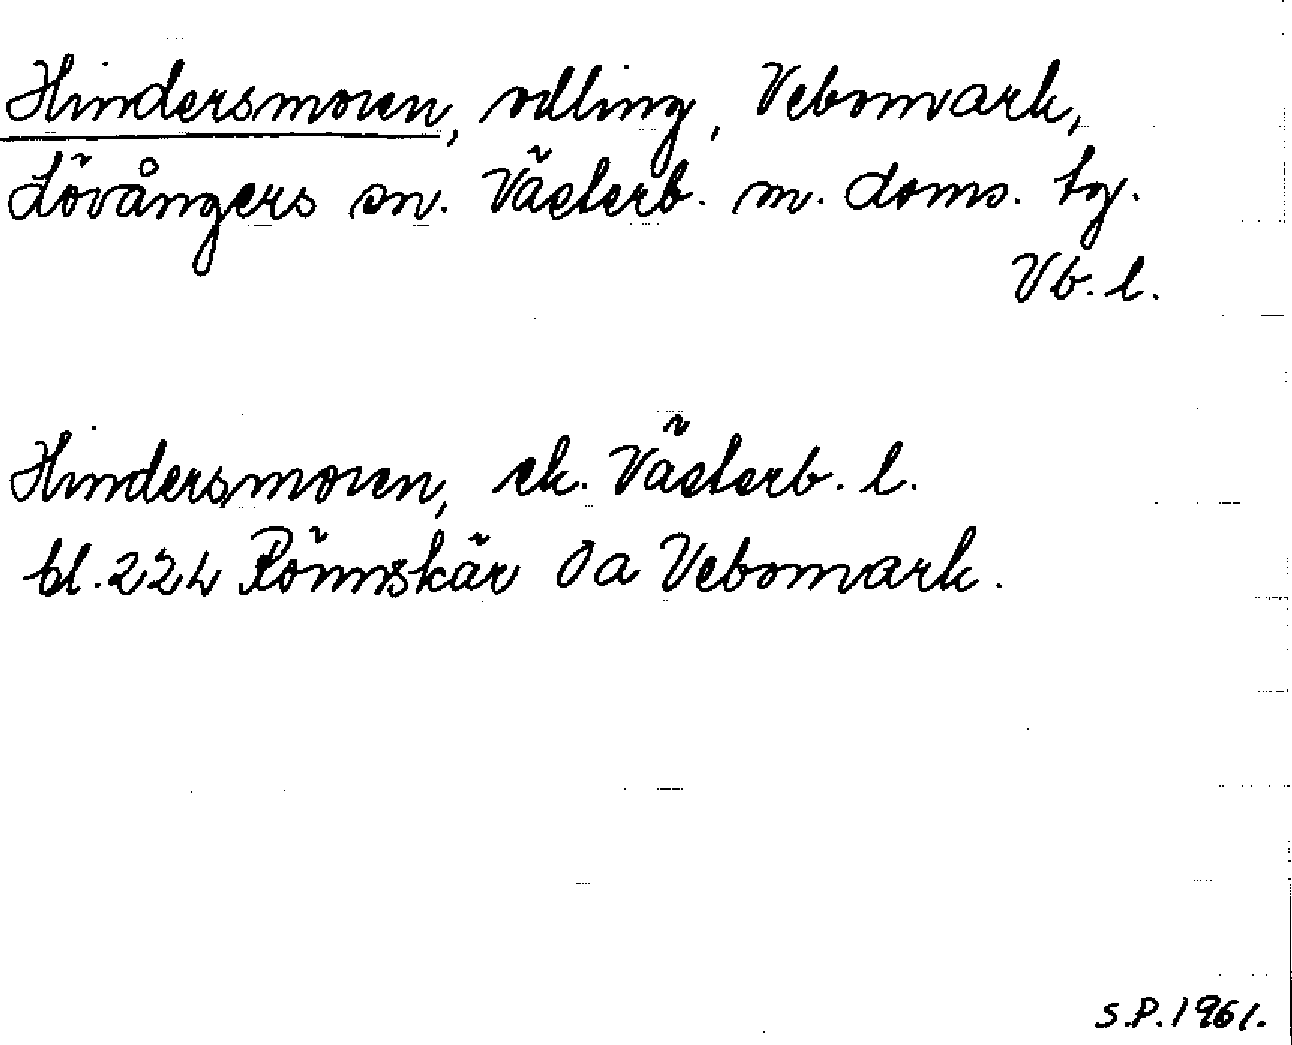 Hindersmoren, odling, Vebomark,
Lövångers sn. Västerb. m. doms. tg.
Vb. l.
Hindersmoren, ek. Västerb. l.
bl. 224 Rönnskär Öa Vebomark.
S.P. 1961.